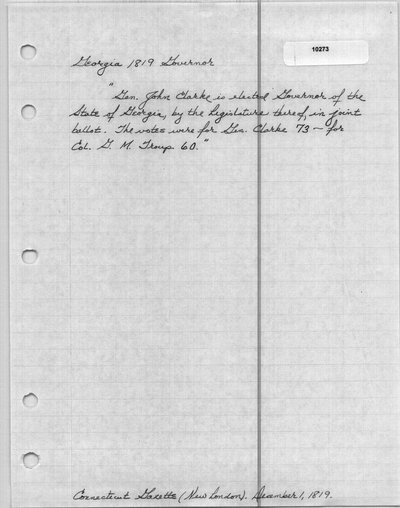 10273
Georgia 1819 Governor
"Gen. John Clarke is elected Governor of the
State of Georgia, by the Legislature thereof, in joint
ballot. The votes were for Gen. Clarke 73 – for
Col. G. M. Troup 60."
Connecticut Gazette (New London). December 1, 1819.